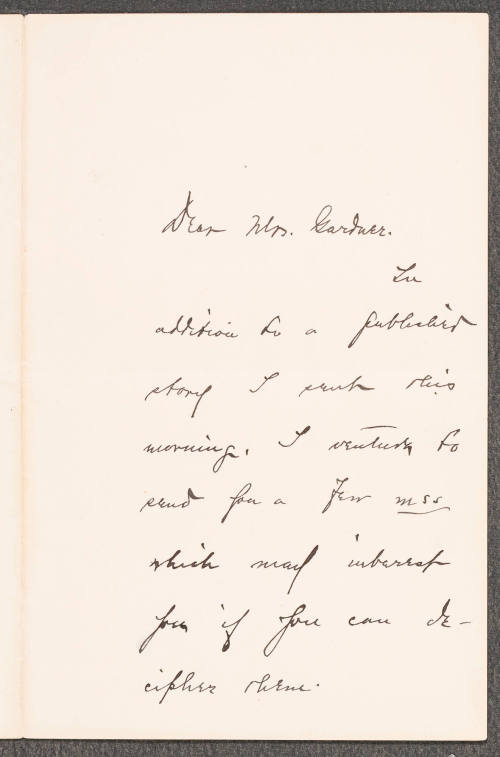 Dear Mrs. Gardner.
In
addition to a published
story I sent this
morning. I venture to
send you a few mss
which may interest
you if you can de-
cipher them.